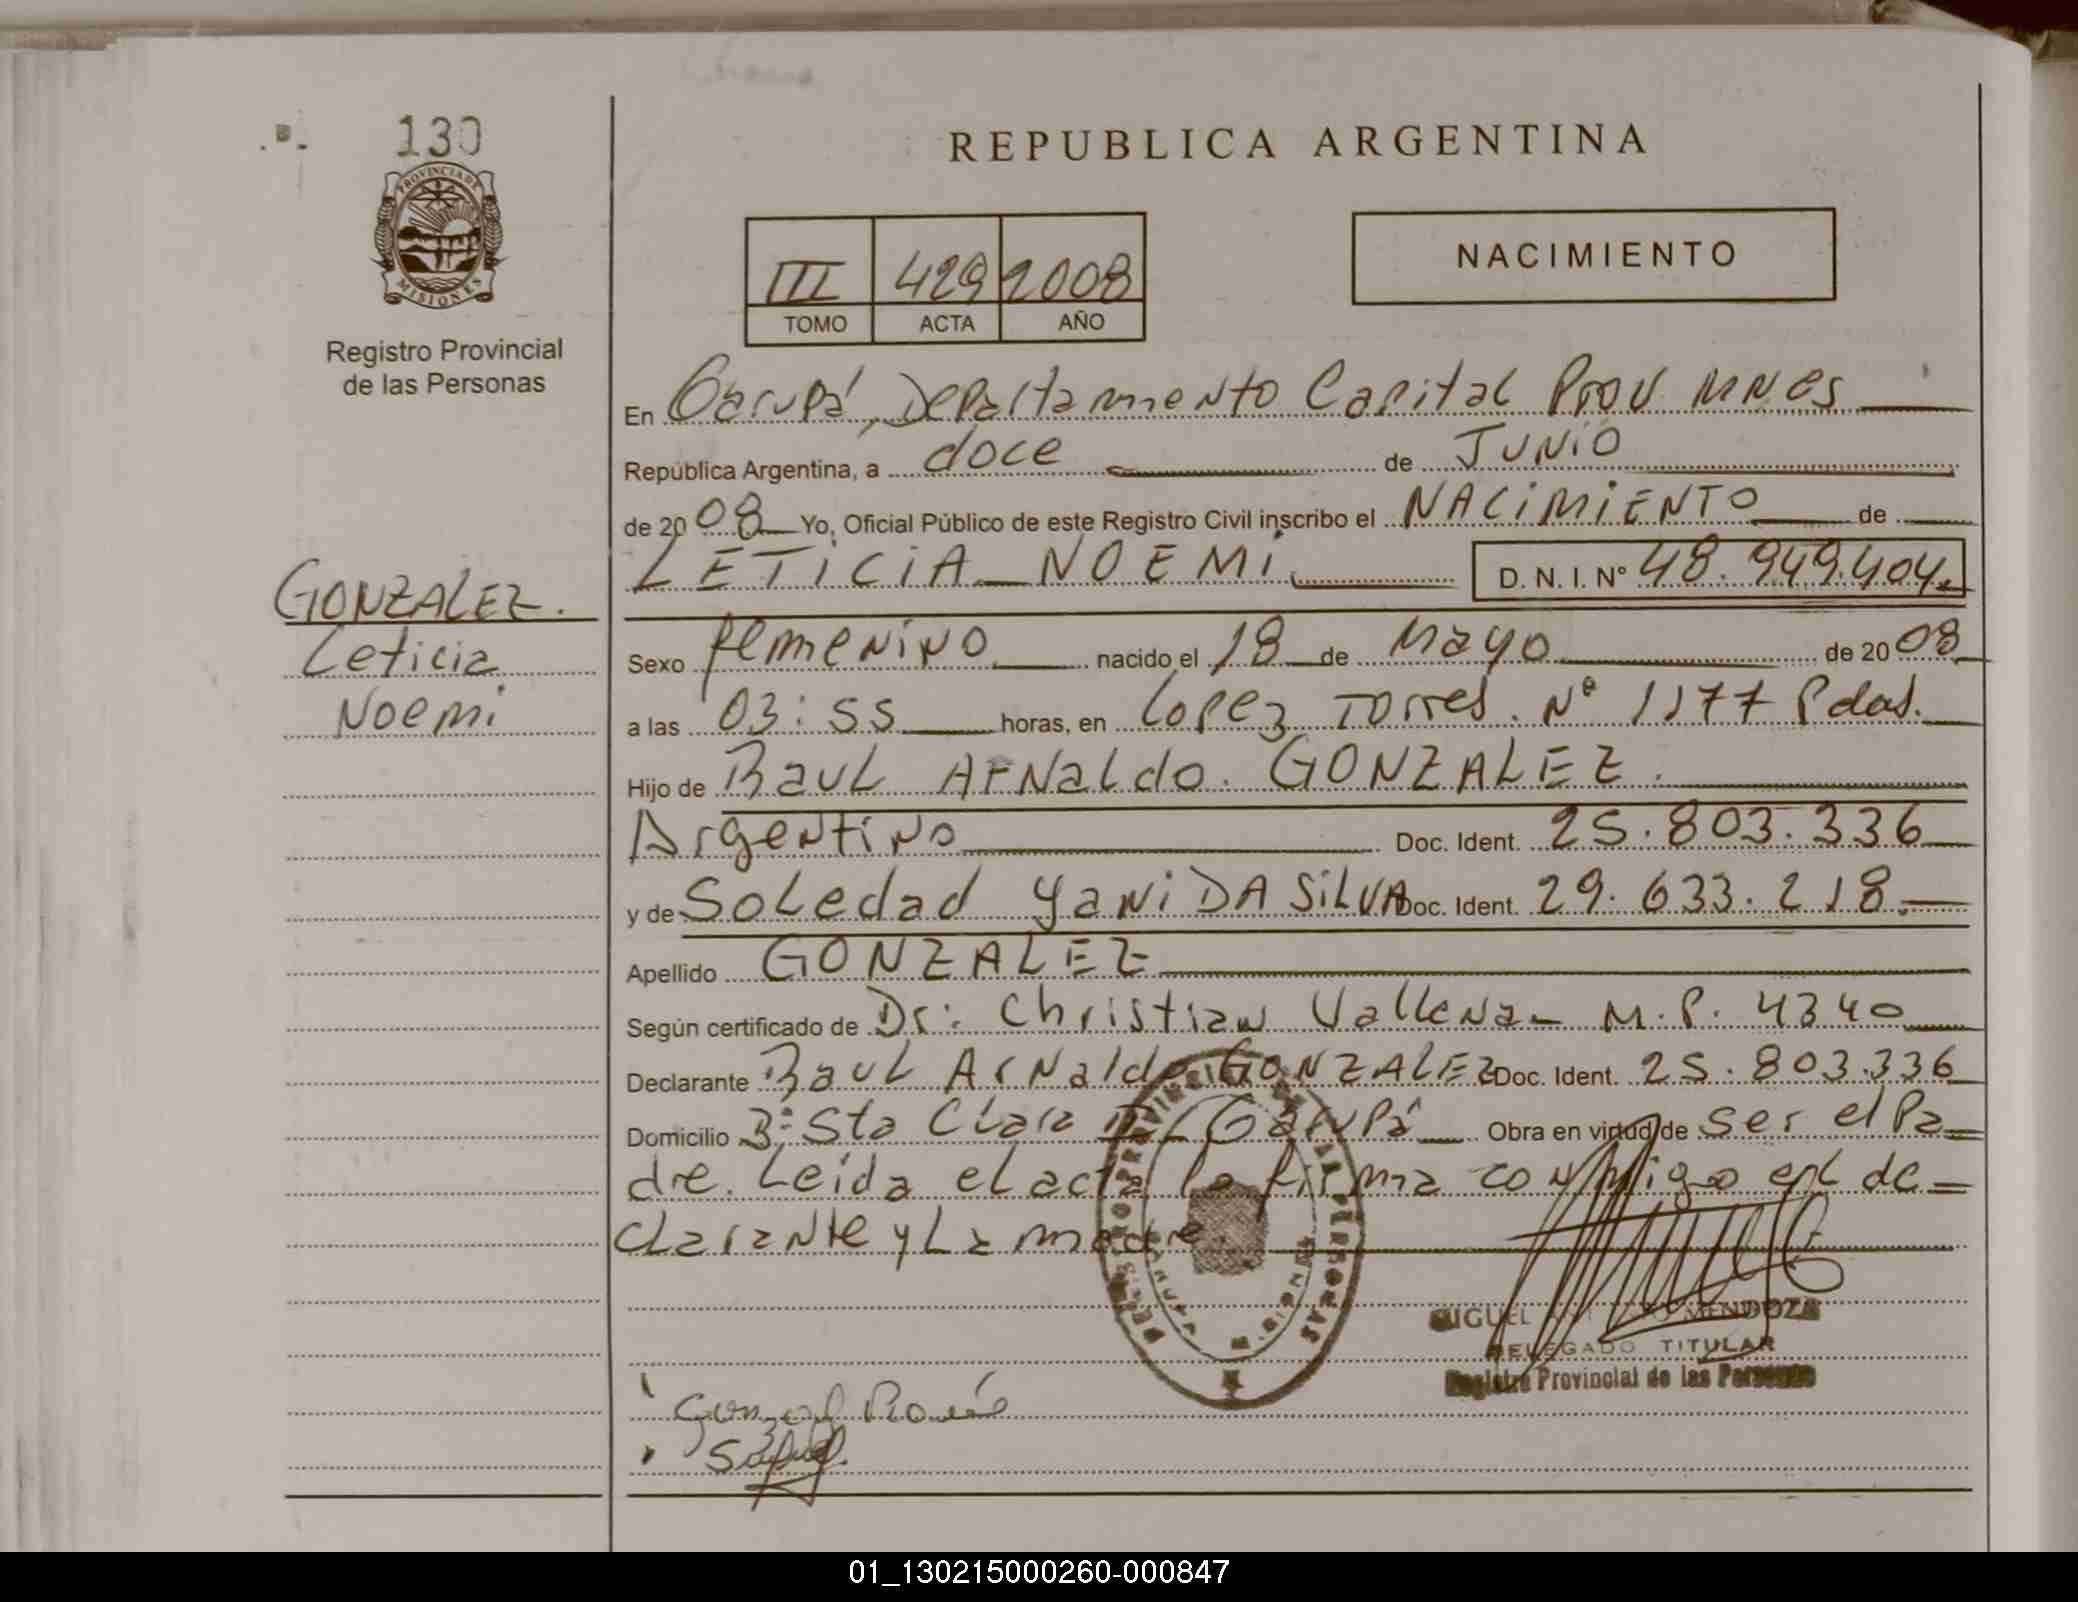 130
PROVINCIA DE
MISIONES
Registro Provincial
de las Personas
GONZALEZ.
Leticia
Noemi
REPUBLICA ARGENTINA
III 429 2008
TOMO ACTA AÑO
NACIMIENTO
En Garupá, Departamento Capital Prov Mnes
República Argentina, a doce de Junio
de 2008 Yo, Oficial Público de este Registro Civil inscribo el NACIMIENTO de
LETICIA NOEMI D. N. I. Nº 48.949.404
Sexo femenino nacido el 18 de Mayo de 2008
a las 03:55 horas, en Lopez Torres. Nº 1177 Pdas.
Hijo de Raul Arnaldo. GONZALEZ.
Argentino Doc. Ident. 25.803.336
y de Soledad Yani DA SILVA Doc. Ident. 29.633.218.
Apellido GONZALEZ
Según certificado de Dr: Christian Vallena M.P. 4340
Declarante Raul Arnaldo GONZALEZ Doc. Ident. 25.803.336
Domicilio Bº Sta Clara II Garupá Obra en virtud de ser el Pa
dre. Leida el acta la firma conmigo el de
clarante y La madre.
MIGUEL MENDOZA
DELEGADO TITULAR
Registro Provincial de las Personas
01_130215000260-000847